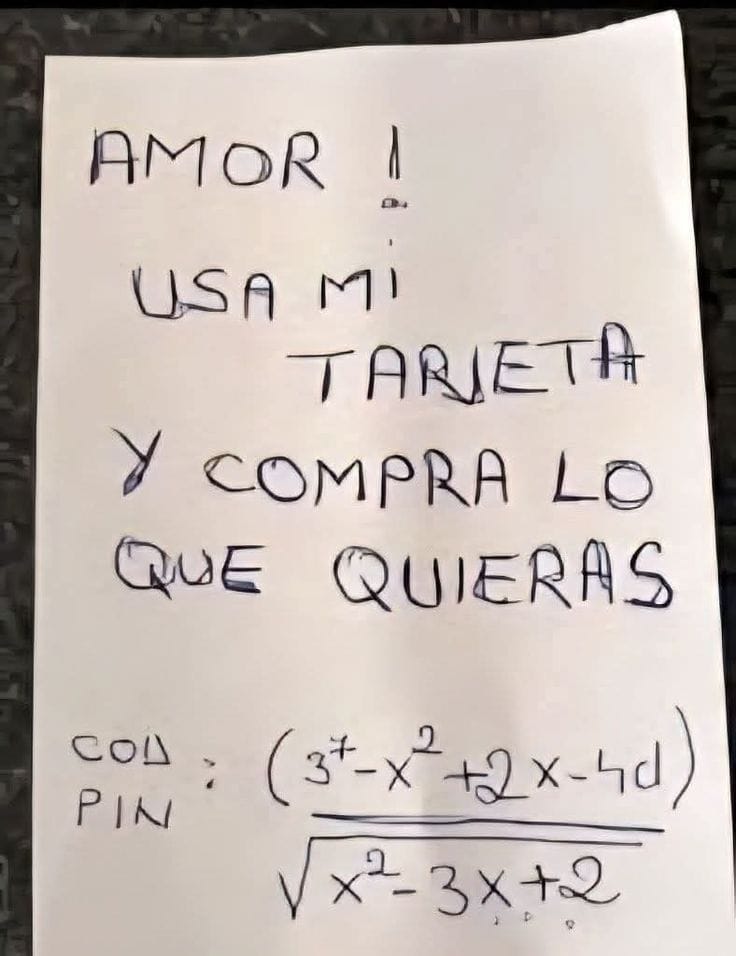 AMOR !
USA MI
TARJETA
Y COMPRA LO
QUE QUIERAS
COD PIN : (3⁷-x²+2x-4d)
√x²-3x+2